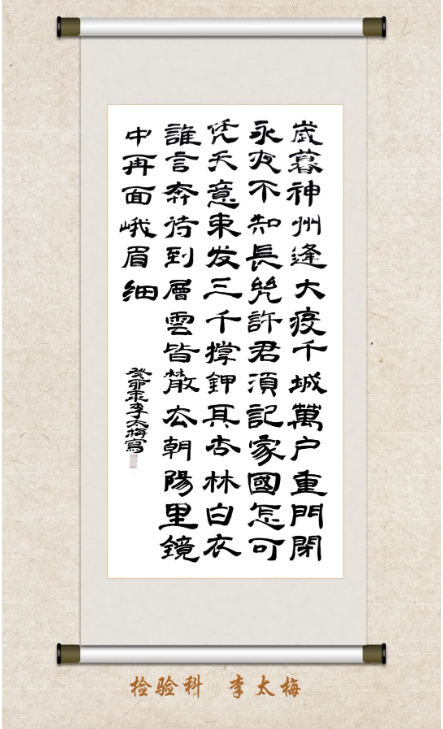 歲暮神州逢大疫千城萬户重門閉
永夜不知長許君須記家國怎可
凭天意束发三千撑鉀具杏林白衣
誰言待到層雲皆散去朝陽里鏡
中再面峨眉细
李太梅寫
检验科 李太梅